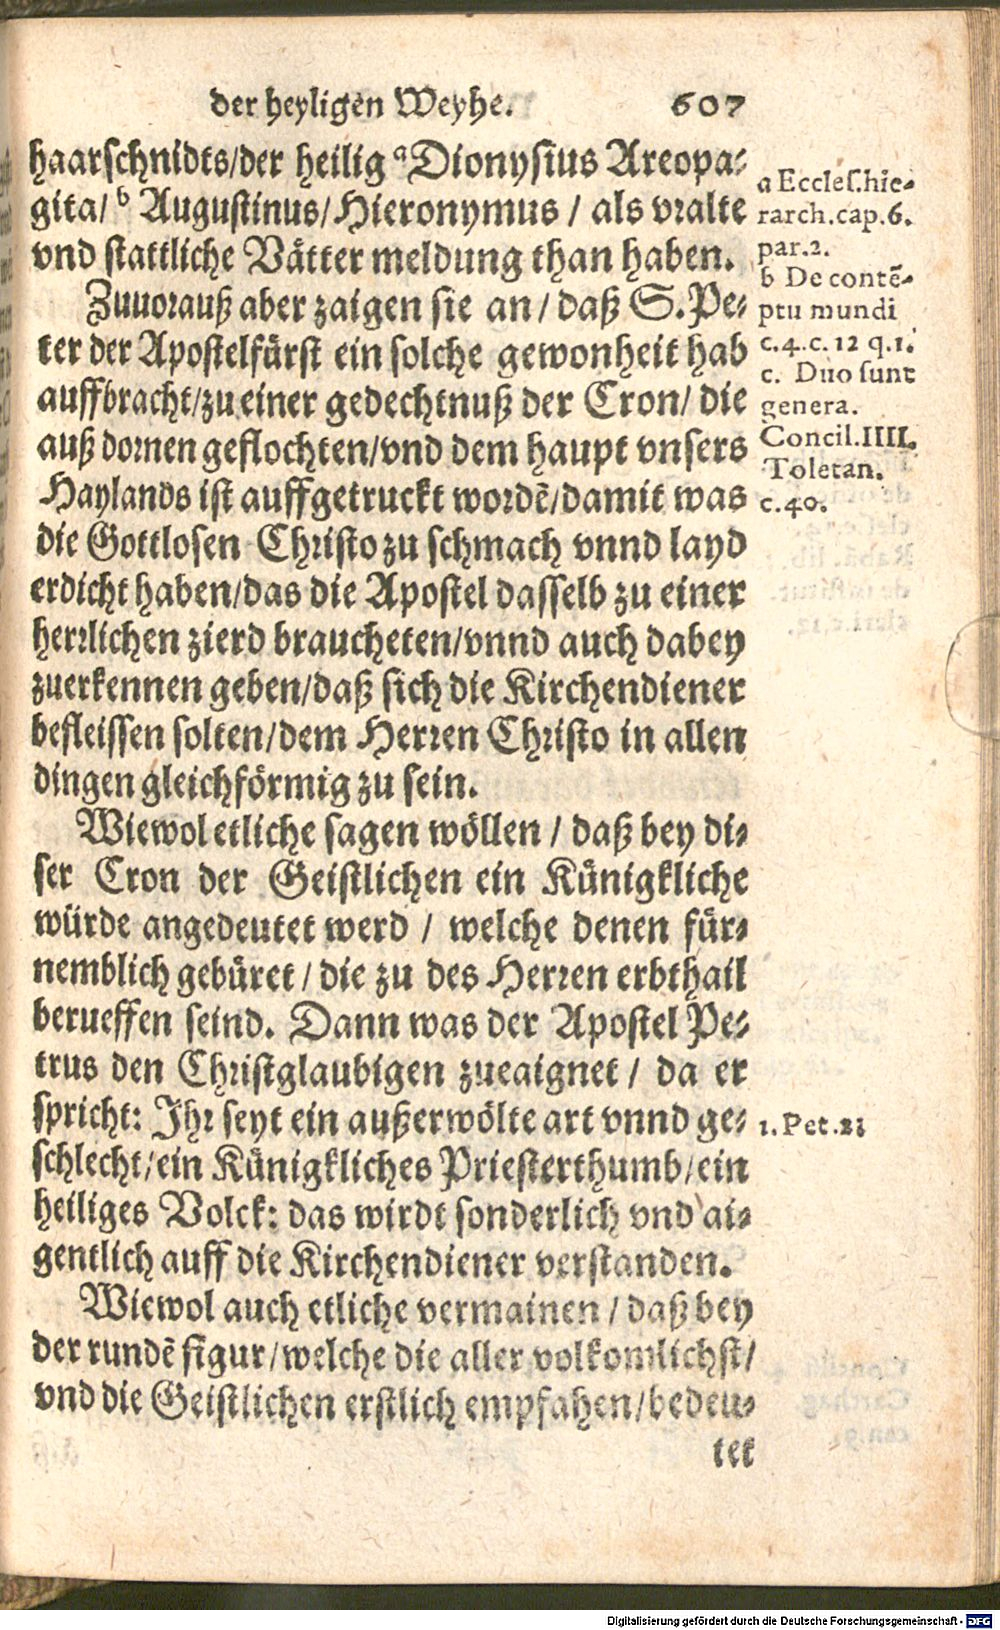 der heyligen Weyhe. 607
haarschnidts/der heilig ᵃ Dionysius Areopa-
gita/ ᵇ Augustinus/Hieronymus / als vralte
vnd stattliche Vätter meldung than haben.
Zuuorauß aber zaigen sie an / daß S. Pe-
ter der Apostelfürst ein solche gewonheit hab
auffbracht/zu einer gedechtnuß der Cron/ die
auß dornen geflochten/vnd dem haupt vnsers
Haylands ist auffgetruckt wordē/damit was
die Gottlosen Christo zu schmach vnnd layd
erdicht haben/das die Apostel dasselb zu einer
herrlichen zierd braucheten/vnnd auch dabey
zuerkennen geben/daß sich die Kirchendiener
befleissen solten/dem Herren Christo in allen
dingen gleichförmig zu sein.
Wiewol etliche sagen wöllen / daß bey di-
ser Cron der Geistlichen ein Künigkliche
würde angedeutet werd / welche denen für-
nemblich gebüret / die zu des Herren erbthail
berueffen seind. Dann was der Apostel Pe-
trus den Christglaubigen zueaignet / da er
spricht: Ihr seyt ein außerwölte art vnnd ge-
schlecht/ein Künigkliches Priesterthumb/ein
heiliges Volck: das wirdt sonderlich vnd ai-
gentlich auff die Kirchendiener verstanden.
Wiewol auch etliche vermainen / daß bey
der rundē figur/welche die aller volkomlichst/
vnd die Geistlichen erstlich empfahen/bedeu-
tet
a Eccles. hie-
rarch. cap. 6.
par. 2.
b De contē-
ptu mundi
c. 4. c. 12 q. 1.
c. Duo sunt
genera.
Concil. IIII.
Toletan.
c. 40.
1. Pet. 2;
Digitalisierung gefördert durch die Deutsche Forschungsgemeinschaft - DFG